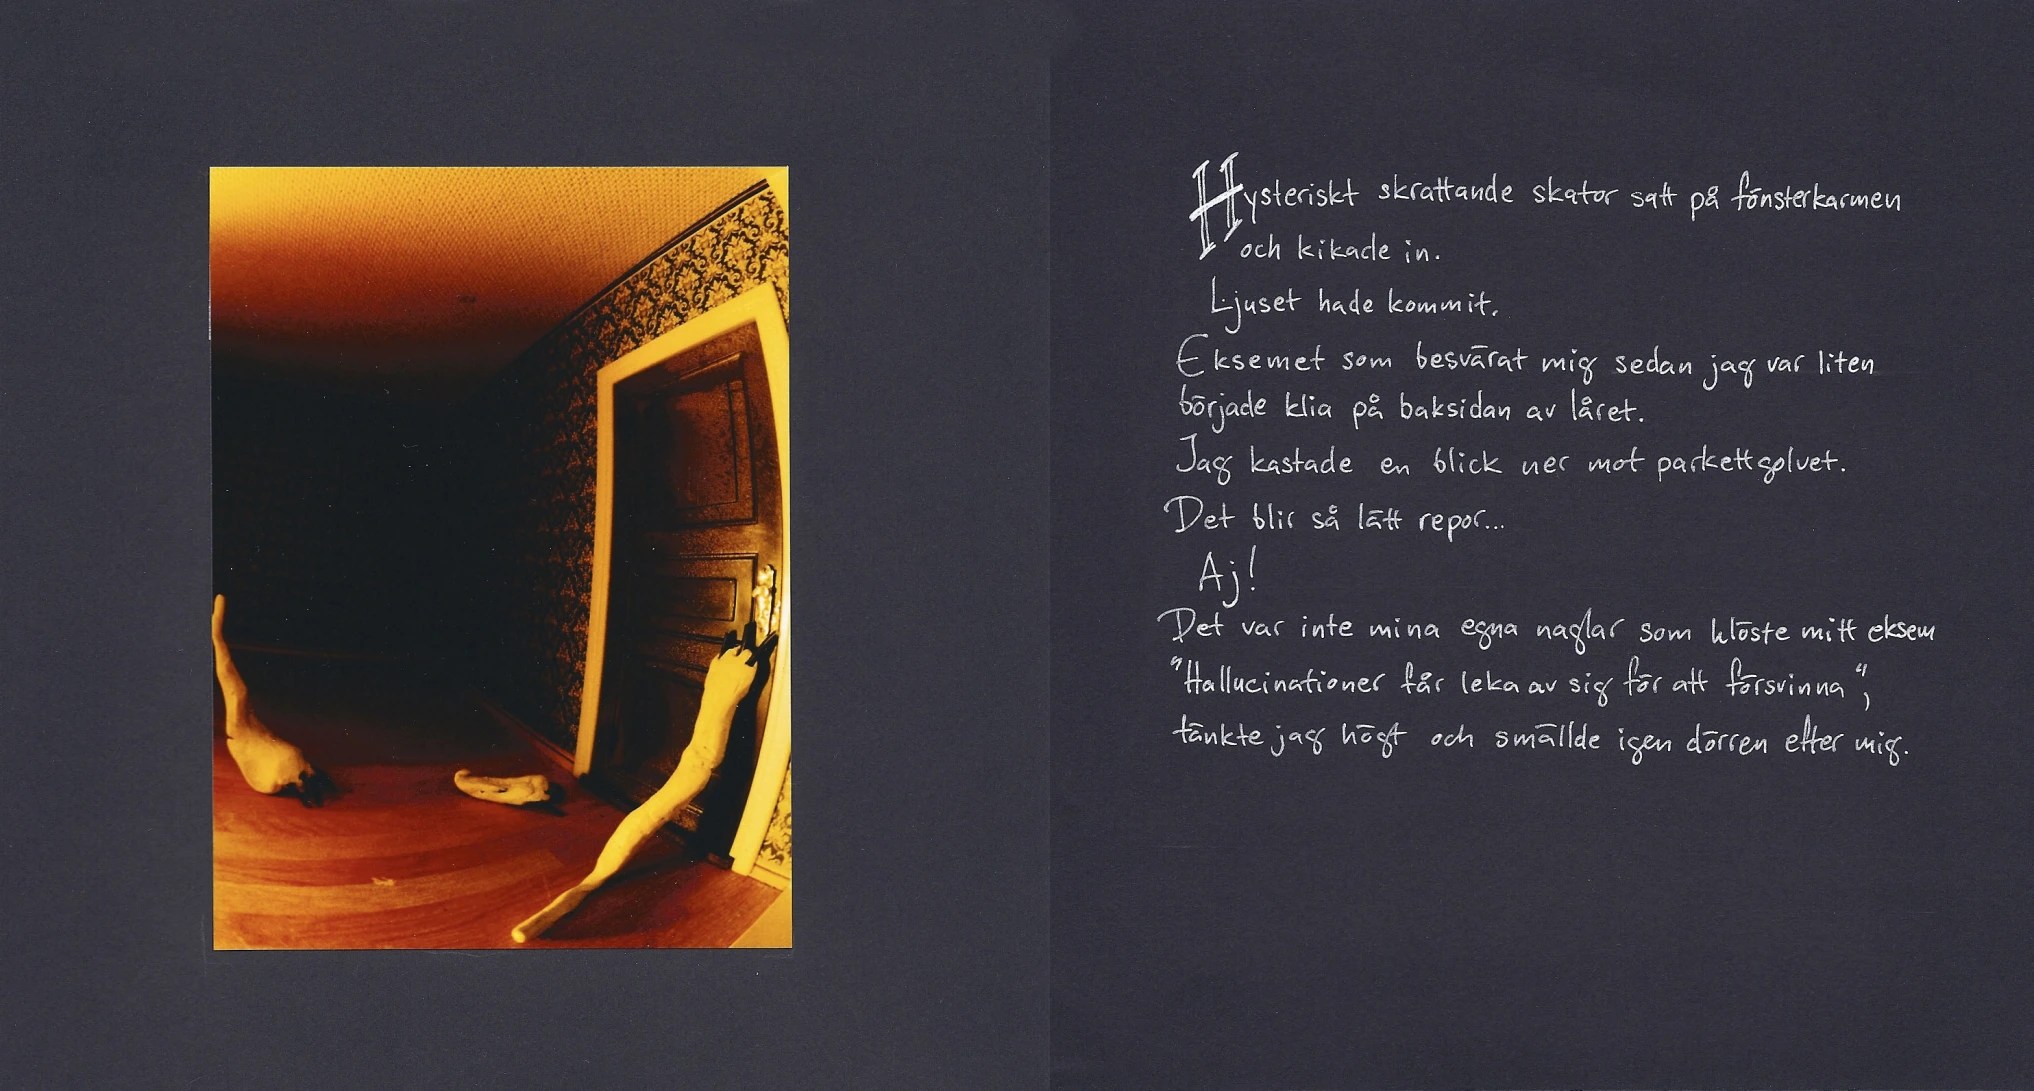 Hysteriskt skrattande skator satt på fönsterkarmen
och kikade in.
Ljuset hade kommit.
Eksemet som besvärat mig sedan jag var liten
började klia på baksidan av låret.
Jag kastade en blick ner mot parkettgolvet.
Det blir så lätt repor...
Aj!
Det var inte mina egna naglar som klöste mitt eksem
"Hallucinationer får leka av sig för att försvinna",
tänkte jag högt och smällde igen dörren efter mig.